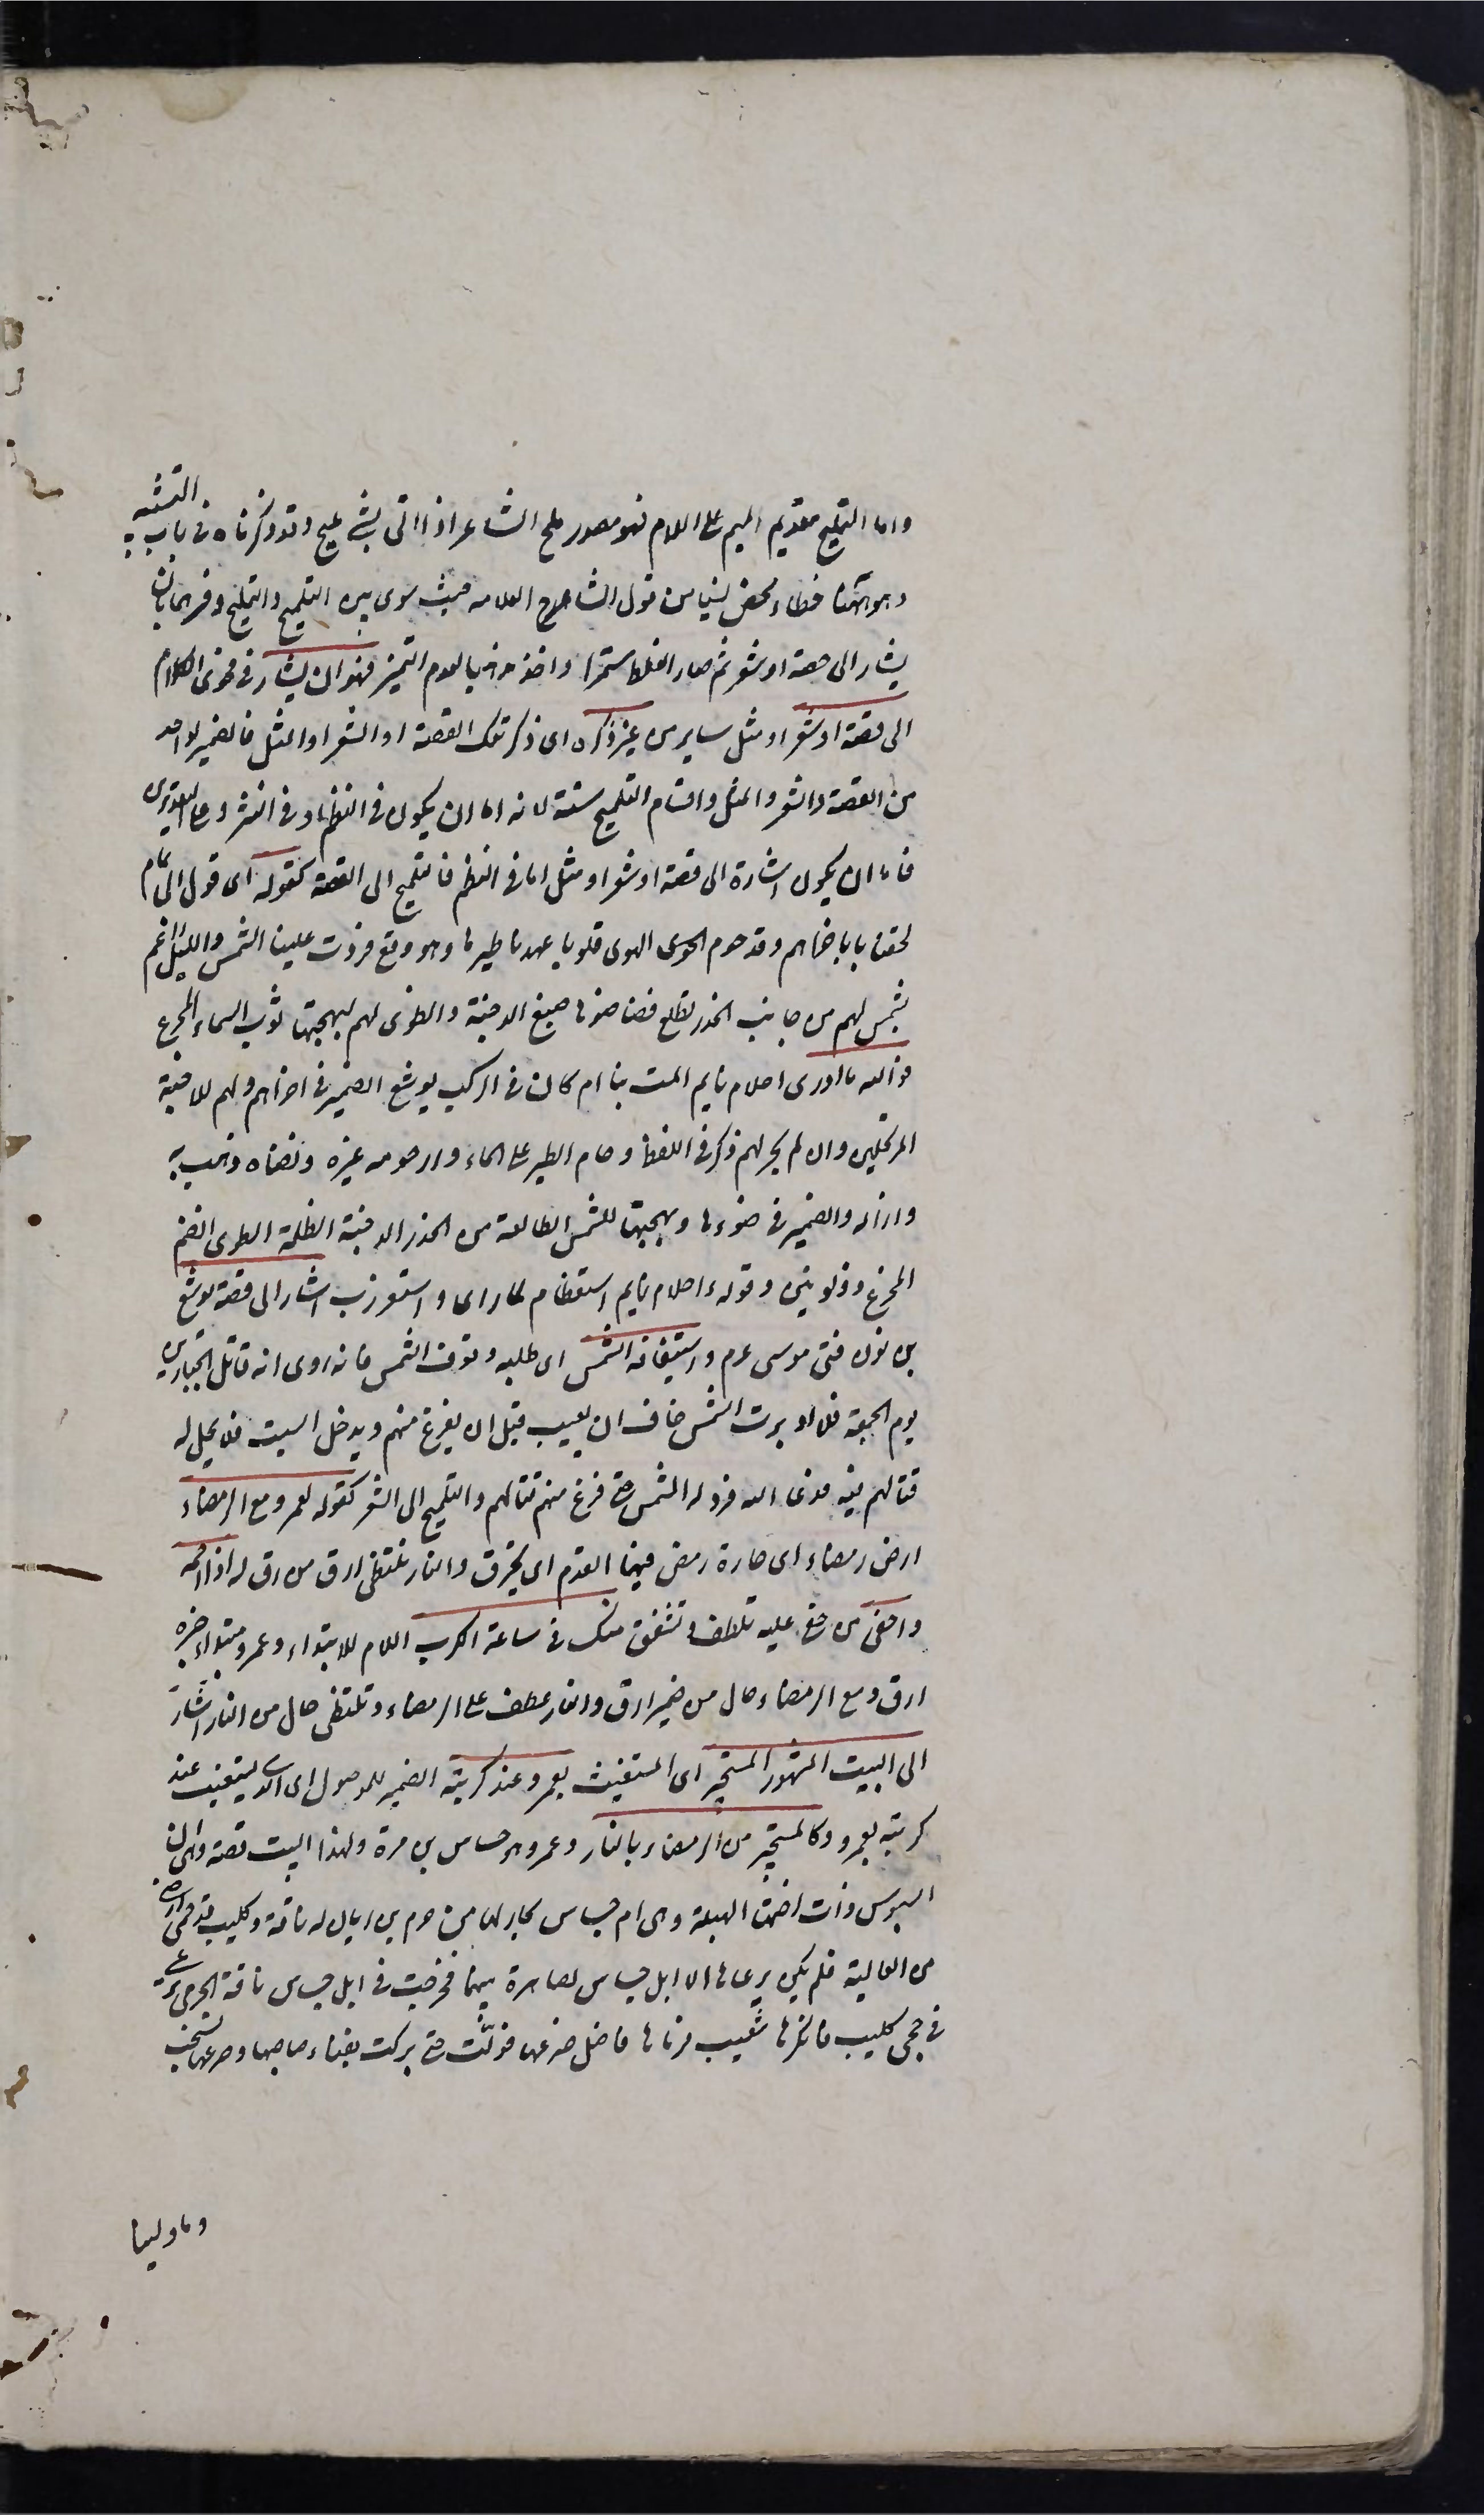 واما التمليح بتقديم الميم على اللام فهو مصدر ملح الشاعر اذا اتى بشئ مليح وقد ذكرناه فى باب التشبيه
وهو ههنا خطاء محض نشاء من قول الشارح العلامه حيث سوى بين التلميح والتمليح وفسرهما بان
يشار الى قصة او شعر ثم صار الغلط مستمرا واخذ مذهبا لعدم التميز فهو ان يشار فى فحوى الكلام
الى قصة او شعر او مثل ساير من غير ذكره اى ذكر تلك القصة او الشعر او المثل فالضمير لواحد
من القصة والشعر والمثل واقسام التلميح ستة لانه اما ان يكون فى النظم او فى النثر وعلى التقديرين
فاما ان يكون اشارة الى قصة او شعر او مثل اما فى النظم فالتلميح الى القصة كقوله اى قول ابى تمام
لحقنا باخراهم وقد حوم الهوى قلوبا عهدنا طيرها وهو وقع فردت علينا الشمس والليل راغم
بشمس لهم من جانب الخدر تطلع فضا ضوءها صبغ الدجنة وانطوى لهم لبهجتها ثوب السماء المجزع
فوالله ما ادرى احلام نايم المت بنا ام كان فى الركب يوشع الضمير فى اخراهم ولهم للاحبة
المرتحلين وان لم يجر لهم ذكر فى اللفظ وحام الطير على الماء دار حوله وحومه غيره ونضاه ذهب به
وازاله والضمير فى ضوءها وبهجتها للشمس الطالعة من الخدر الدجنة الظلمة انطوى انضم
المجزع ذو لونين وقوله ءاحلام نايم استعظام لما راى واستغراب اشار الى قصة يوشع
بن نون فتى موسى عم واستيقافه الشمس اى طلبه وقوف الشمس فانه روى انه قاتل الجبارين
يوم الجمعة فلما ادبرت الشمس خاف ان يغيب قبل ان يفرغ منهم ويدخل السبت فلا يحل له
قتالهم فيه فدعى الله فرد له الشمس حتى فرغ من قتالهم والتلميح الى الشعر كقوله لعمرو مع الرمضاء
ارض رمضاء اى حارة رمض فيها القدم اى يحترق والنار تلتظى ارق من رق له اذا رحمه
واحفى من حفى عليه تلطف وتشفق منك فى ساعة الكرب اللام للابتداء وعمرو مبتداء خبره
ارق ومع الرمضاء حال من ضمير ارق والنار عطف على الرمضاء وتلتظى حال من النار اشار
الى البيت المشهور المستجير اى المستغيث بعمرو عند كربته الضمير للموصول اى الذى يستغيث عند
كربته بعمرو كالمستجير من الرمضاء بالنار وعمرو هو جساس بن مرة ولهذا البيت قصة وهى ان
البسوس زارت اختها الهيلة وهى ام جساس بجار لها من جرم بن ريان له ناقة وكليب قد حمى ارضا
من العالية فلم يكن يرعاها الا ابل جساس لمصاهرة بينهما فخرجت فى ابل جساس ناقة الجرمى ترعى
فى حمى كليب فانكرها كليب فرماها فاختل ضرعها فولت حتى بركت بفناء صاحبها وضرعها تشخب
دما ولبنا